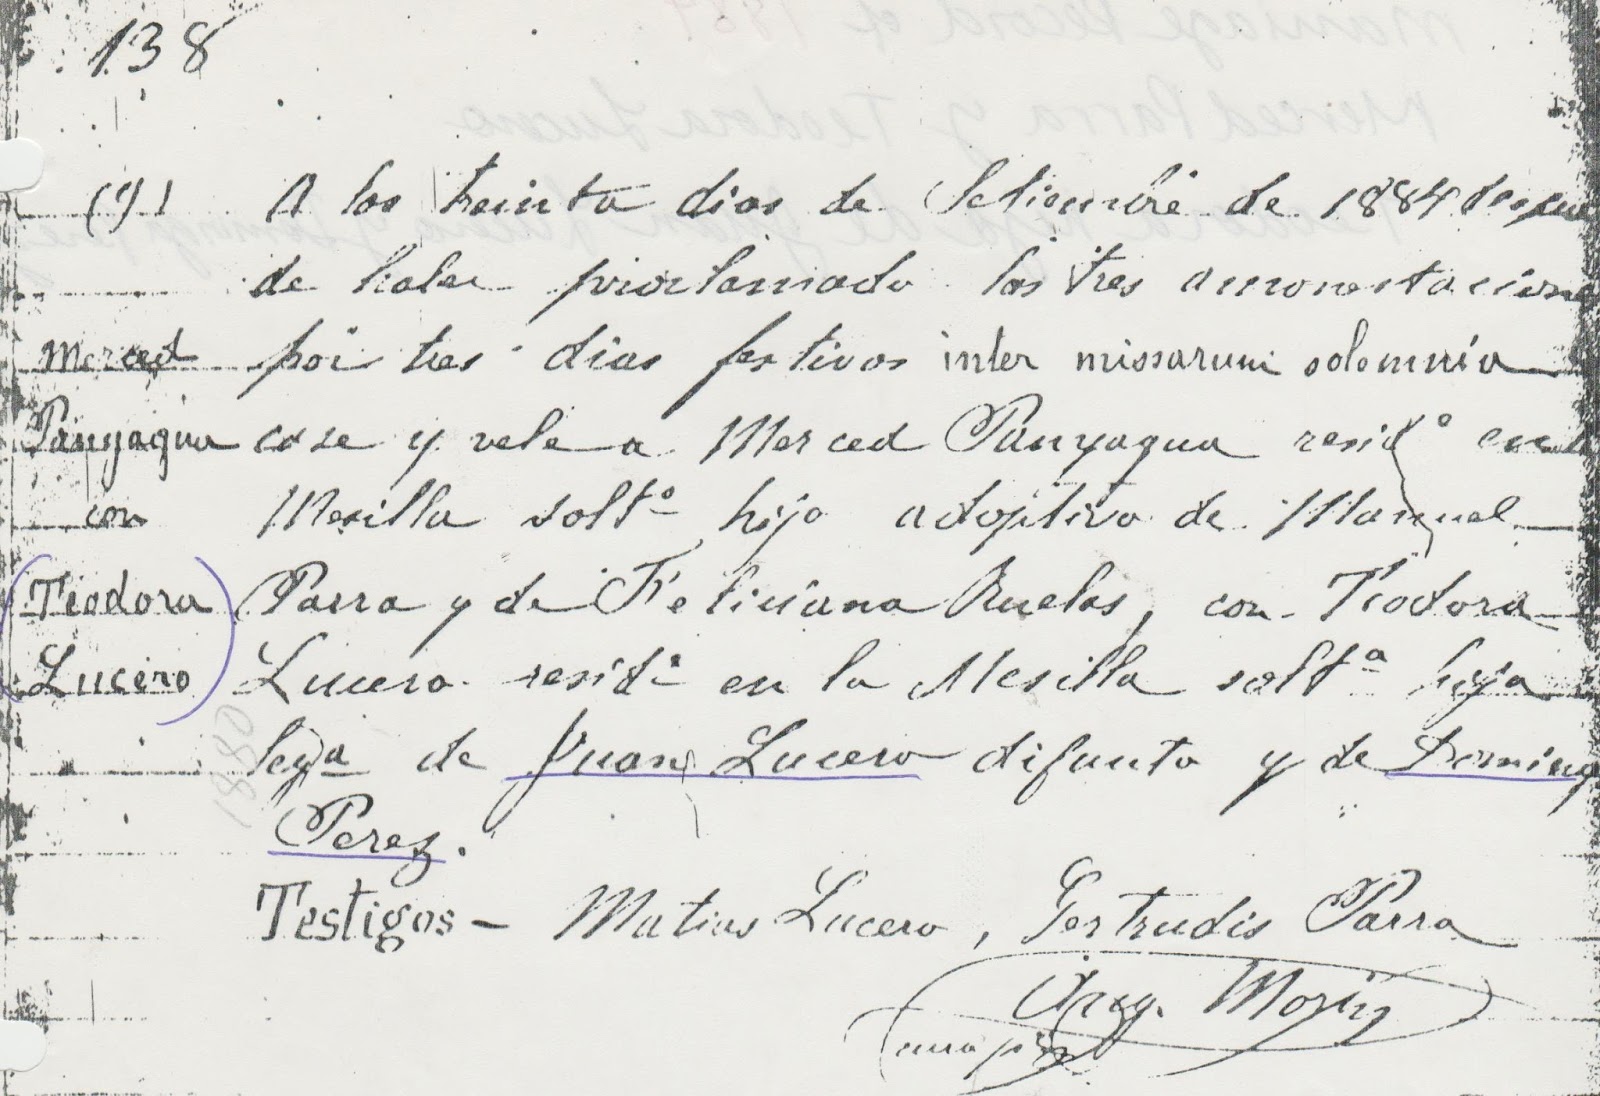 138
A los treinta dias de Setiembre de 1884 despues
de haber proclamado las tres amonestaciones
por tres dias festivos inter missarum solemnia
case y vele a Merced Panyagua resid.º en
Mesilla solt.º hijo adoptivo de Manuel
Parra y de Feliciana Ruelas, con Teodora
Lucero resid.ª en la Mesilla solt.ª hija
leg.ª de Juan Lucero difunto y de Doming
Perez.
Testigos - Matias Lucero, Gertrudis Parra
Aug. Morin
cura
Merced
Panyagua
con
Teodora
Lucero
Marriage Record of
Merced Parra y Teodora Lucero
Teodora hija de Juan Lucero y Dominga Perez